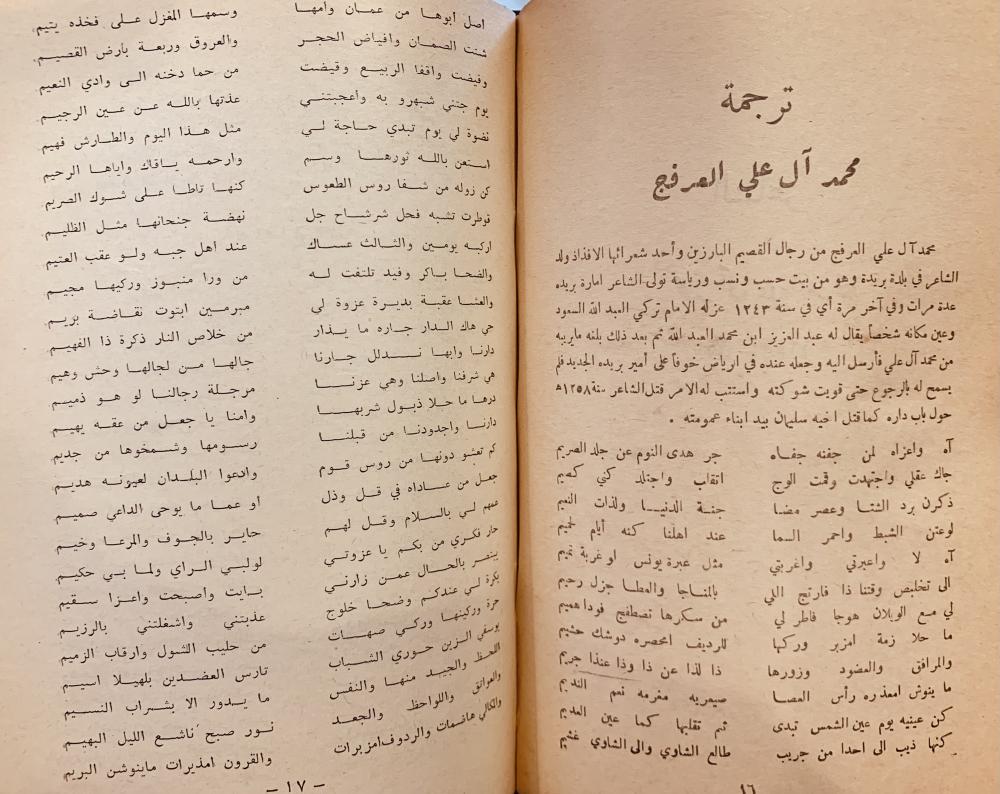 ترجمة
محمد آل علي العرفج
محمد آل علي العرفج من رجال القصيم البارزين وأحد شعرائها الافذاذ ولد
الشاعر في بلدة بريدة وهو من بيت حسب ونسب ورياسة تولى الشاعر امارة بريده
عدة مرات وفي آخر مرة أي في سنة ١٢٤٣ عزله الامام تركي العبد الله السعود
وعين مكانه شخصاً يقال له عبد العزيز ابن محمد العبد الله ثم بعد ذلك بلغه مايريبه
من محمد آل علي فأرسل اليه وجعله عنده في الرياض خوفاً على أمير بريده الجديد فلم
يسمح له بالرجوع حتى قويت شوكته واستتب له الامر قتل الشاعر سنة ١٢٥٨ه
حول باب داره كما قتل اخيه سليمان بيد ابناء عمومته .
آه واعزاه لمن جفنه جفاه جر هدى النوم عن جلد الصريم
جاك عقلي واجتهدت وقمت الوج اتقاب واجتلد كني كصيم
ذكرن برد الشتا وعصر مضا جنة الدنيا ولذات النعيم
لوعتن الشبط واحمر السما عند اهلنا كنه أيام لحيم
آه لا واعبرتي واغربتي مثل عبرة يونس او غربة تميم
الى تخليص وقتنا ذا فارتج اللي بالمناجا والعطا جزل رحيم
لي مع الوبلان هوجا فاطر لي من سكرها تصطفج فودا هميم
ما حلا زمة امزبر وركها للرديف امحصره دوشك حشيم
والمرافق والعضود وزورها ذا لذا عن ذا وذا عنذا جريم
ما ينوش امعذره رأس العصا صيعريه مغرمه نعم النديم
كن عينيه يوم عين الشمس تبدى ثم تقلبها كما عين العديم
كنها ذيب الى احدا من جريب طالع الشاوي والى الشاوي غشيم
١٦
اصل أبوها من عمان وامها وسمها المغزل على فخذه يتيم
شتت الصمان وافياض الحجر والعروق وربعة بارض القصيم
وقيضت واقفا الربيع وقيضت من حما دخنه الى وادي النعيم
يوم جتني شبهرو به وأعجبتني عذتها بالله عن عين الرجيم
نضوة لي يوم تبدي حاجة لي مثل هذا اليوم والطارش فهيم
استعن بالله ثورها وسم وارحمه ياقاك واياها الرحيم
كن زوله من شفا روس الطعوس كنها تاطا على شوك الصريم
فوطرت تشبه فحل شرشاح جل نهضة جنحانها مثل الظليم
اركبه يومين والثالث عساك عند اهل جبه ولو عقب العتيم
والضحا باكر وفيد تلتفت له من ورا منبوز وركيها مجيم
والعشا عقبة بديرة عزوة لي مبرمين ابتوت نقاضة بريم
حي هاك الدار جاره ما يذار من خلاص النار ذكرة ذا الفهيم
دارنا وابها ندلل جارنا جالها من لجالها وحش وهيم
هي شرفنا واصلنا وهي عزنا مرجلة رجالنا لو هو ذميم
درها ما حلا ذبول شربها وامنا يا جعل من عقه يهيم
دارنا واجدودنا من قبلنا رسومها وشمخوها من جديم
كم تعشو دونها من روس قوم وادعوا البلدان لعيونه هديم
جعل من عاداه في قل وذل او عما ما يوحى الداعي صميم
عمهم لي بالسلام وقل لهم حاير بالجوف والمرعا وخيم
حار فكري من بكم يا عزوتي لولبي الراي ولما بي حكيم
ينصر بالحال عمن زارني بايت واصبحت واعزا سقيم
بكرة لي عندكم وضحا خلوج عذبتني واشغلتني بالرزيم
حرة وركينها وركي صهات من حليب الشول وارقاب الزميم
يوسفي الزين حوري الشباب تارس العضدين بلهيلا اسيم
اللحظ والجيد منها والنفس ما يدور الا بشراب النسيم
والعواتق واللواحظ والجعد نور صبح ناشع الليل البهيم
والكالي هافيات والردوف امزبرات والقرون امذيرات ماينوشن البريم
– ١٧ –